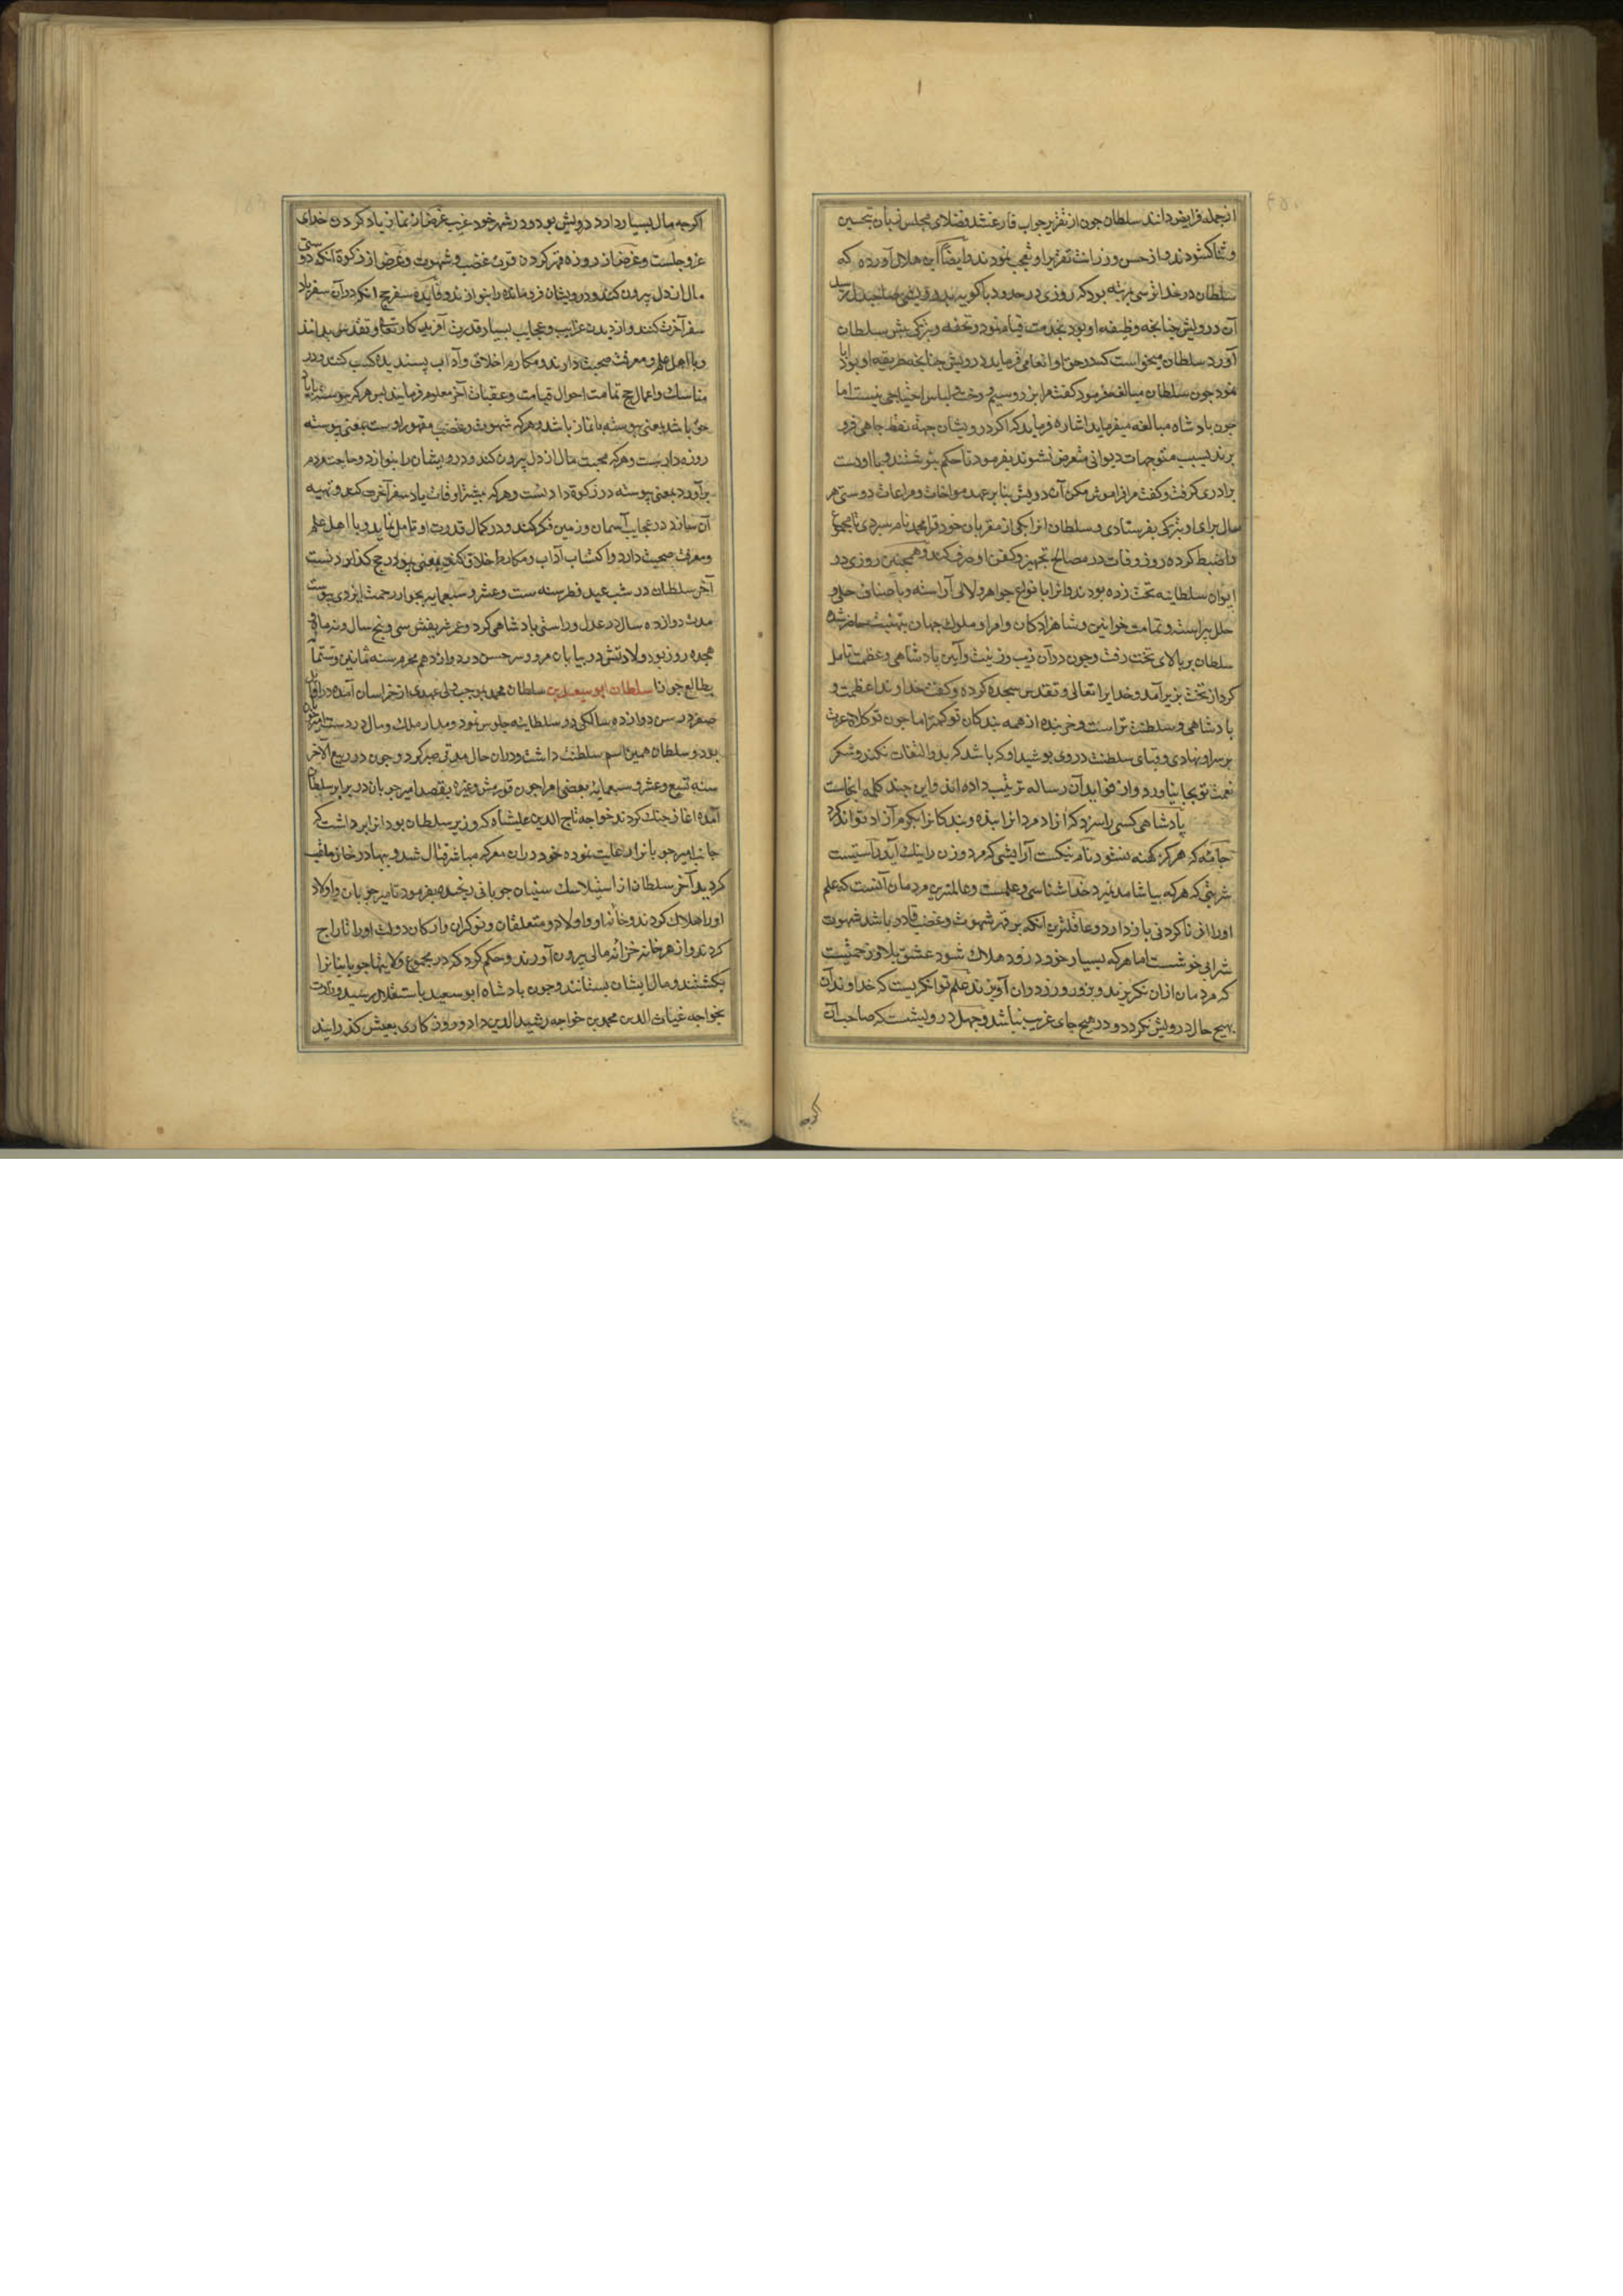 از جمله فرایض دانند سلطان چون از تقریر جواب فارغ شد فضلای مجلس زبان تحسین
و ثنا کشودند و از حسن و رزانت تقریر او تعجب نمودند و ایضاً ابن هلال آورده که
سلطان در خداترسی بمرتبه بود که روزی در حدود باکویه بدرویشی صاحبدل رسید
آن درویش چنانچه وظیفه او بود بخدمت قیام نمود و تحفه و تبرکی پیش سلطان
آورد سلطان میخواست که در حق او انعامی فرماید درویش چنانچه طریقه او بود ابا
نمود چون سلطان مبالغه فرمود کفت مرا بزر و سیم و رخت و لباس احتیاجی نیست اما
چون پادشاه مبالغه میفرماید اشاره فرماید که اکر درویشان جهة نفط چاهی فرو
برند بسبب متوجهات دیوانی متعرض نشوند بفرمود تا حکم بنوشتند و با او دست
برادری کرفت و کفت مرا فراموش مکن آن درویش بنابر عهد مواخات و مراعات دوستی هر
سال برای او تبرکی بفرستادی و سلطان انرا بیکی از مقربان خود قرامحمد نام سپردی تا مجموع
را ضبط کرده روز وفات در مصالح تجهیز و کفن او صرف کنند و همچنین روزی در
ایوان سلطانیه تخت زده بودند و انرا بانواع جواهر و لالی آراسته و باصناف حلی و
حلل پیراسته و تمامت خواتین و شاهزادکان و امرا و ملوک جهان بتهنیت حاضر شده
سلطان بر بالای تخت رفت و چون در آن زیب و زینت و آیین پادشاهی و عظمت تامل
کرد از تخت بزیر آمد و خدایرا تعالی و تقدس سجده کرده و کفت خداوندا عظمت و
پادشاهی و سلطنت تراست و خربنده از همه بندکان تو کمتر اما چون تو کلاه عزت
بر سر او نهادی و قبای سلطنت در وی پوشیدی او که باشد که بدو التفات نکند و شکر
نعمت تو بجا نیاورد و از فواید آن رساله ترتیب داده اند و این چند کلمه ایجاست
پادشاهی کسی را سزد که آزاد مردانرا بنده و بندکانرا بکرم آزاد تواند کرد
جامهٔ که هرکز کهنه نشود نام نیکست آرایشی که مرد و زن را نیک آید راستیست
شربتی که هر که بیاشامد نمیرد خداشناسی و علمست و عالمترین مردمان آنست که علم
او را از ناکردنی باز دارد و عاقلترین انکه بر قهر شهوت و غضب قادر باشد شهوت
شرابی خوشست اما هر که بسیار خورد زود هلاک شود عشق بلا و زحمتیست
که مردمان ازان نکریزند و بزور و زر در وان آویزند علم توانکریست که خداوند آن
بهیچ حال درویش نکردد و در هیچ جای غریب نباشد و جهل درویشیست که صاحب آن
اکرچه
اکرچه مال بسیار دارد درویش بود و در شهر خود غریب غرض از نماز یاد کردن خدای
عز و جلست و غرض از روزه قهر کردن قوت غضب و شهوت و غرض از زکوة انکه دوستی
مال از دل بیرون کنند و درویشان فرومانده را بنوازند و فایدهٔ سفر حج انکه در آن سفر یاد
سفر آخرت کنند و از دیدن غرایب و عجایب بسیار قدرت آفریدکار تعالی و تقدس بدانند
و با اهل علم و معرفت صحبت دارند و مکارم اخلاق و آداب پسندیده کسب کنند و در
مناسک و اعمال حج تمامت احوال قیامت و عقبات آخر معلوم فرمایند پس هر که پیوسته با یاد
حق باشد بمعنی پیوسته با نماز باشد و هر که شهوت و غضب مقهور اوست بمعنی پیوسته
روزه دارست و هر که محبت مال از دل بیرون کند و درویشان را بنوازد و حاجت مردم
برآورد بمعنی پیوسته در زکوة دادنست و هر که بیشتر اوقات یاد سفر آخرت کند و تهیه
آن سازد در عجایب آسمان و زمین فکر کند و در کمال قدرت او تامل نماید و با اهل علم
و معرفت صحبت دارد و اکتساب آداب و مکارم اخلاق کند بمعنی پیوسته در حج کذاردنست
آخر سلطان در شب عید فطر سنه ست و عشر و سبعمایه بجوار رحمت ایزدی پیوست
مدت دوازده سال در عدل و راستی پادشاهی کرد و عمر شریفش سی و پنج سال و نه ماه و
هجده روز بود ولادتش در بیابان مرو و سرخس در دوازدهم محرم سنه ثمانین و ستمایه
بطالع جوزا سلطان ابو سعید بن سلطان محمد بموجب ولی عهدی از خراسان آمده در اوایل
صفر در سن دوازده سالکی در سلطانیه جلوس نمود و مدار ملک و مال در دست امیر چوپان
بود و سلطان همین اسم سلطنت داشت و دران حال مدتی صبر کرد و چون در ربیع الآخر
سنه تسع و عشر و سبعمایه بعضی امرا چون قورمش و غیره بقصد امیر چوپان در برابر سلطان
آمده اغاز جنک کردند خواجه تاج الدین علیشاه که وزیر سلطان بود انرا بر داشت که
جانب امیر چوپانرا رعایت نموده خود دران معرکه مباشر قتال شد و بهادر خان ملقب
کردید آخر سلطان از استیلا سک ستیان چوپانی رنجیده بفرمود تا میر چوپان و اولاد
او را هلاک کردند و خانهٔ او و اولاد و متعلقان و نوکران و ارکان دولت او را تاراج
کردند و از هر خانه خزانه مالی بیرون آوردند و حکم کرد که در مجموع ولایتها چوپانیانرا
بکشتند و مال ایشان بستانند و چون پادشاه ابو سعید باستقلال رسید وزارت
بخواجه غیاث الدین محمد بن خواجه رشید الدین داد و روزکاری بعیش کذرانید